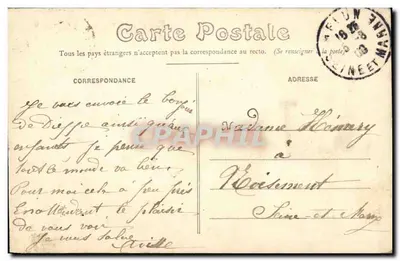 Carte Postale
Tous les pays étrangers n'acceptent pas la correspondance au recto. (Se renseigner à la poste)
CORRESPONDANCE
ADRESSE
MELUN
SEINE ET MARNE
Je vous envoie le bonjour
de Dieppe ainsi qu'aux
enfants je pense que
tout le monde va bien
Pour moi cela à peu près
En attendant le plaisir
de vous voir
Je vous salue
Madame Hémery
à
Seine-et-Marne
CPAPHIL